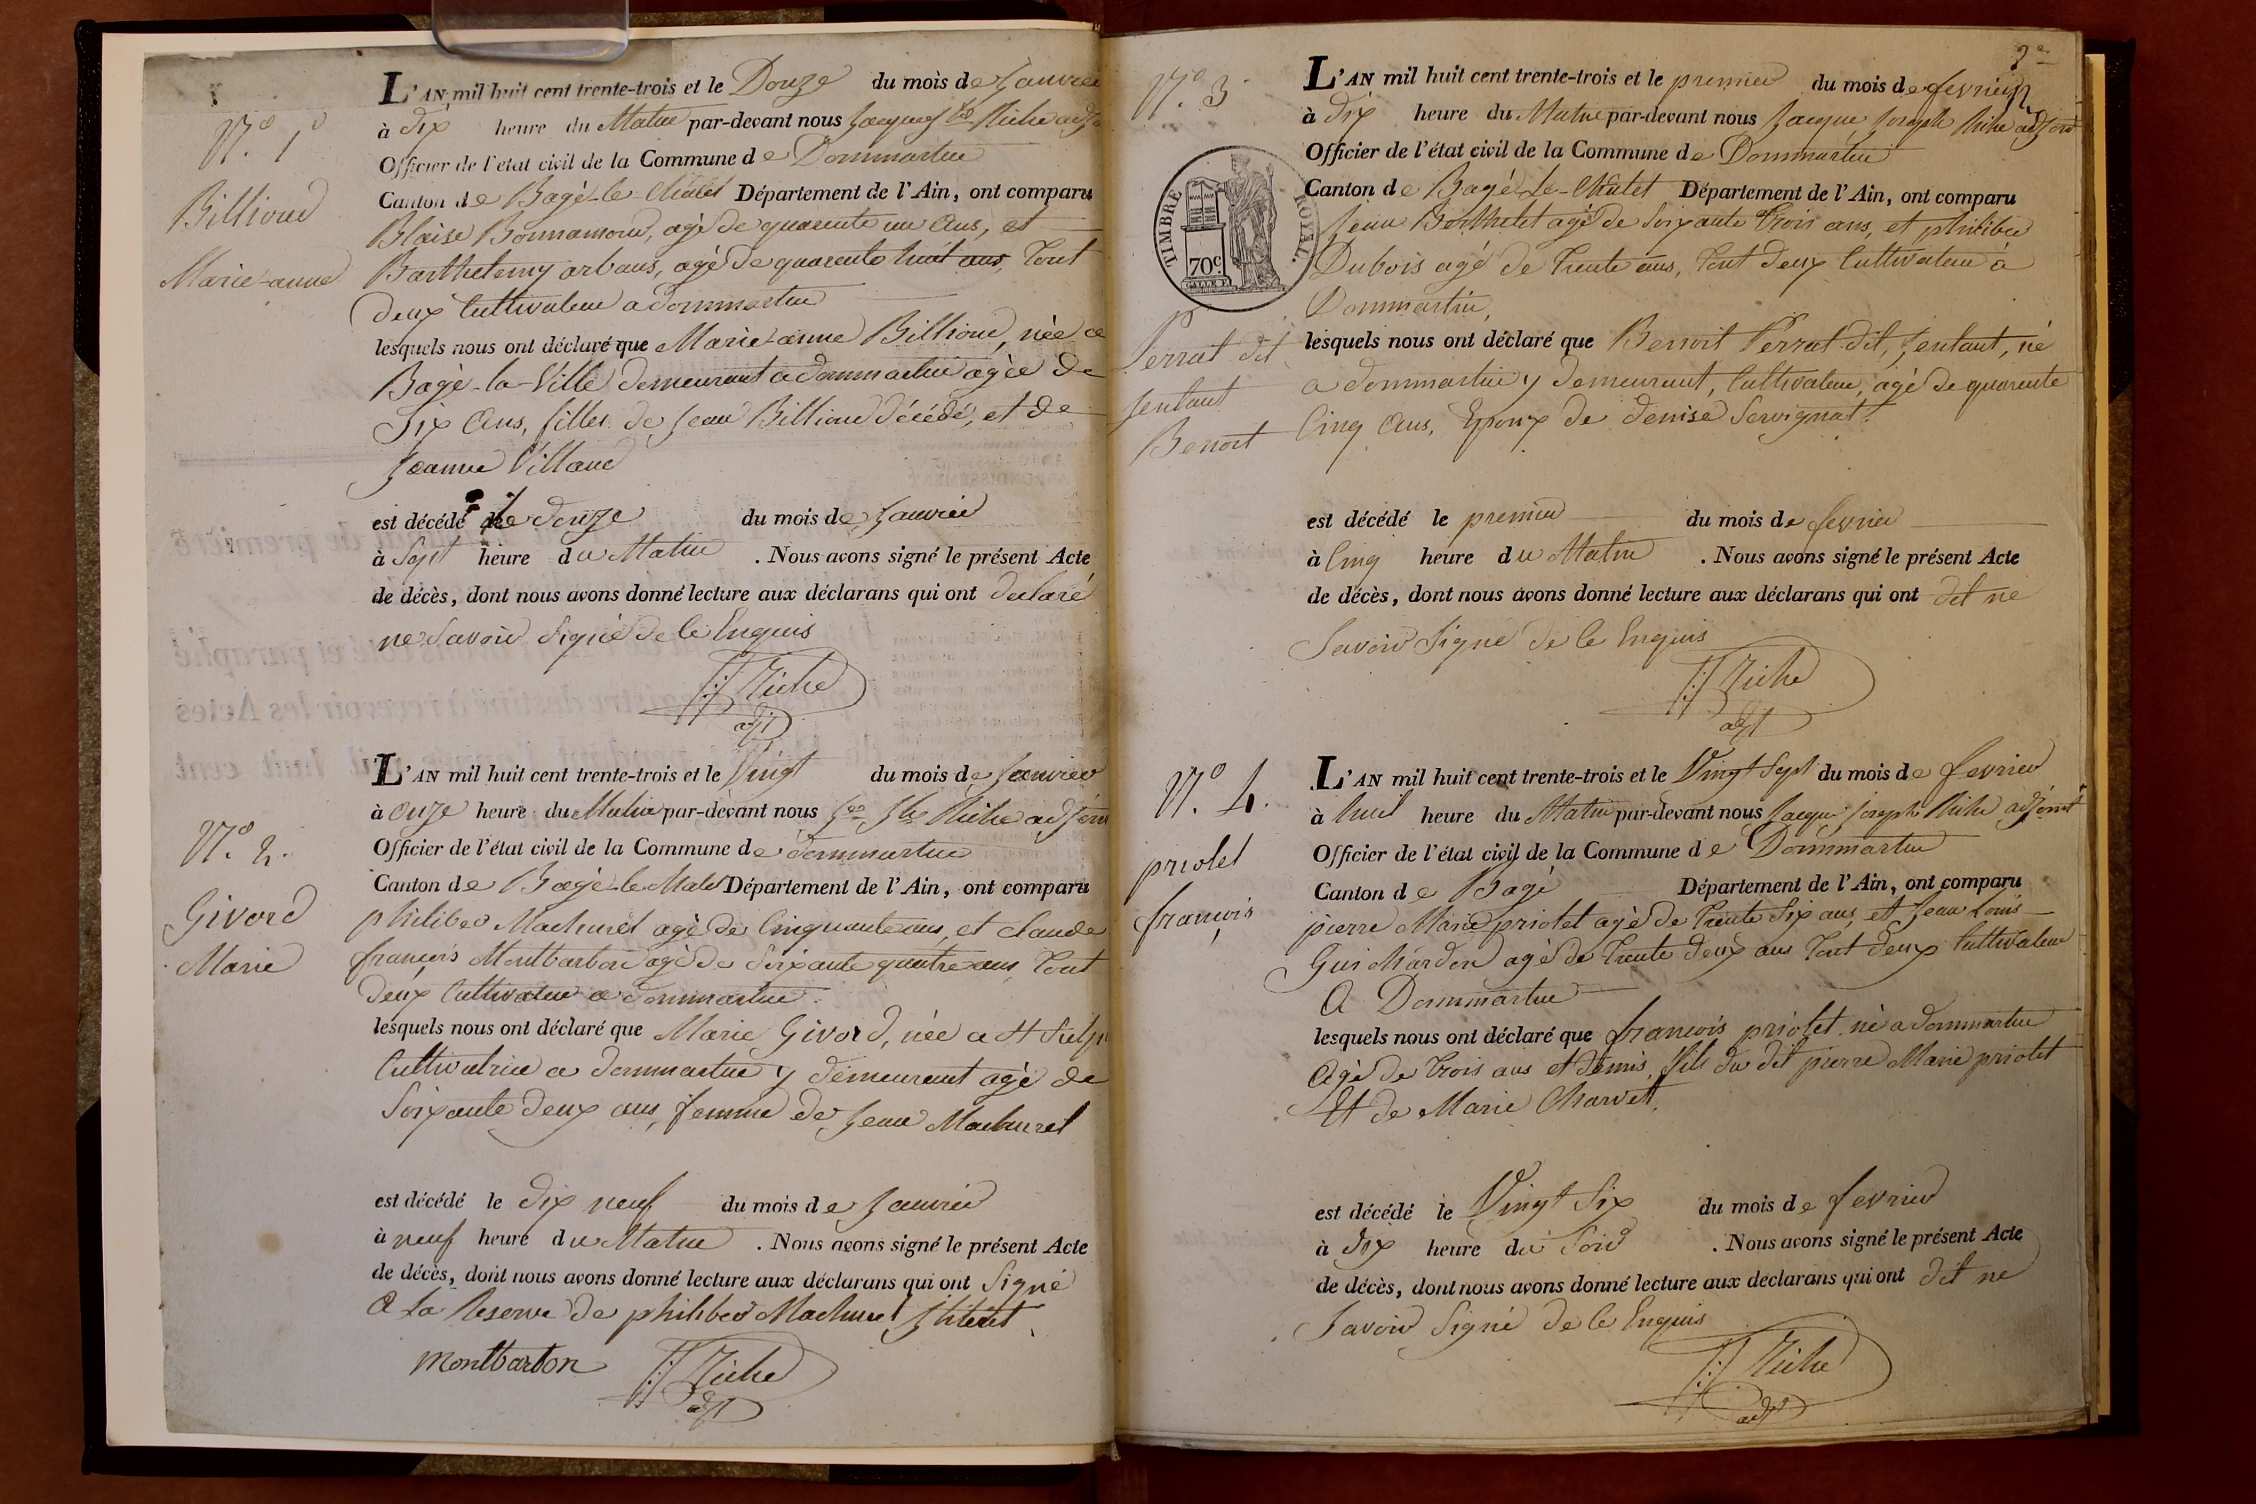 N.o 1o
Billioud
Marie-anne
L'AN mil huit cent trente-trois et le Douze du mois de Janvier
à dix heure du Matin par-devant nous Jacques Jph Riche adjo
Officier de l'état civil de la Commune de Dommartin
Canton de Bagé-le-Châtel Département de l'Ain, ont comparu
Blaise Bonnamour, agé de quarente un ans, et
Barthelemy arbans, agé de quarente huit ans, tout
deux Cultivateur a dommartin
lesquels nous ont déclaré que Marie-anne Billioud, née a
Bagé-la-Ville demeurant a dommartin agée de
Six Ans, filles de Jean Billioud décédé, et de
Jeanne Villand
est décédé le douze du mois de Janvier
à Sept heure du Matin . Nous avons signé le présent Acte
de décès, dont nous avons donné lecture aux déclarans qui ont declaré
ne Savoir Signé de ce Enquis
JJ Riche
adjt
N.o 2.
Givord
Marie
L'AN mil huit cent trente-trois et le Vingt du mois de Janvier
à onze heure du Matin par-devant nous Jques Jph Riche adjoint
Officier de l'état civil de la Commune de dommartin
Canton de Bagé-le-Chatel Département de l'Ain, ont comparu
philiber Machurel agé de Cinquante ans, et claude
françois Montbarbon agé de Soixante quatre ans, tout
deux Cultivateur a dommartin
lesquels nous ont déclaré que Marie Givord, née a St Sulp
Cultivatrice a dommartin y demeurant agé de
Soixante deux ans, femme de Jean Machurel
est décédé le dix neuf du mois de Janvier
à neuf heure du Matin . Nous avons signé le présent Acte
de décès, dont nous avons donné lecture aux déclarans qui ont Signé
a La Reserve de philiber Machurel Jlliteret
Montbarbon JJ Riche
adjt
2e
N.o 3
TIMBRE ROYAL.
70c.
Perrat dit
Jentant
Benoit
L'AN mil huit cent trente-trois et le premier du mois de fevrier
à dix heure du Matin par-devant nous Jacque Joseph Riche adjoint
Officier de l'état civil de la Commune de Dommartin
Canton de Bagé-Le-Châtel Département de l'Ain, ont comparu
Jean Berthelet agé de Soixante trois ans, et philiber
Dubois agé de trente ans, tout deux Cultivateur à
Dommartin,
lesquels nous ont déclaré que Benoit Perrat dit, Jentant, né
a dommartin y demeurant, Cultivateur, agé de quarente
Cinq Ans, Epoux de denise Servignat
est décédé le premier du mois de fevrier
à Cinq heure du Matin . Nous avons signé le présent Acte
de décès, dont nous avons donné lecture aux déclarans qui ont dit ne
Savoir Signé de ce Enquis
JJ Riche
adjt
N.o 4.
priolet
françois
L'AN mil huit cent trente-trois et le Vingt Sept du mois de fevrier
à huit heure du Matin par-devant nous Jacque Joseph Riche adjoint
Officier de l'état civil de la Commune de Dommartin
Canton de Bagé Département de l'Ain, ont comparu
pierre Marie priolet agé de trente Six ans, et Jean Louis
Guichardon agé de trente deux ans tout deux Cultivateur
A Dommartin
lesquels nous ont déclaré que françois priolet né a dommartin
Agé de trois ans et demis, fils du dit pierre Marie priolet
Et de Marie Charvet,
est décédé le Vingt Six du mois de fevrier
à dix heure du Soir . Nous avons signé le présent Acte
de décès, dont nous avons donné lecture aux declarans qui ont dit ne
Savoir Signé de ce Enquis
JJ Riche
adjt